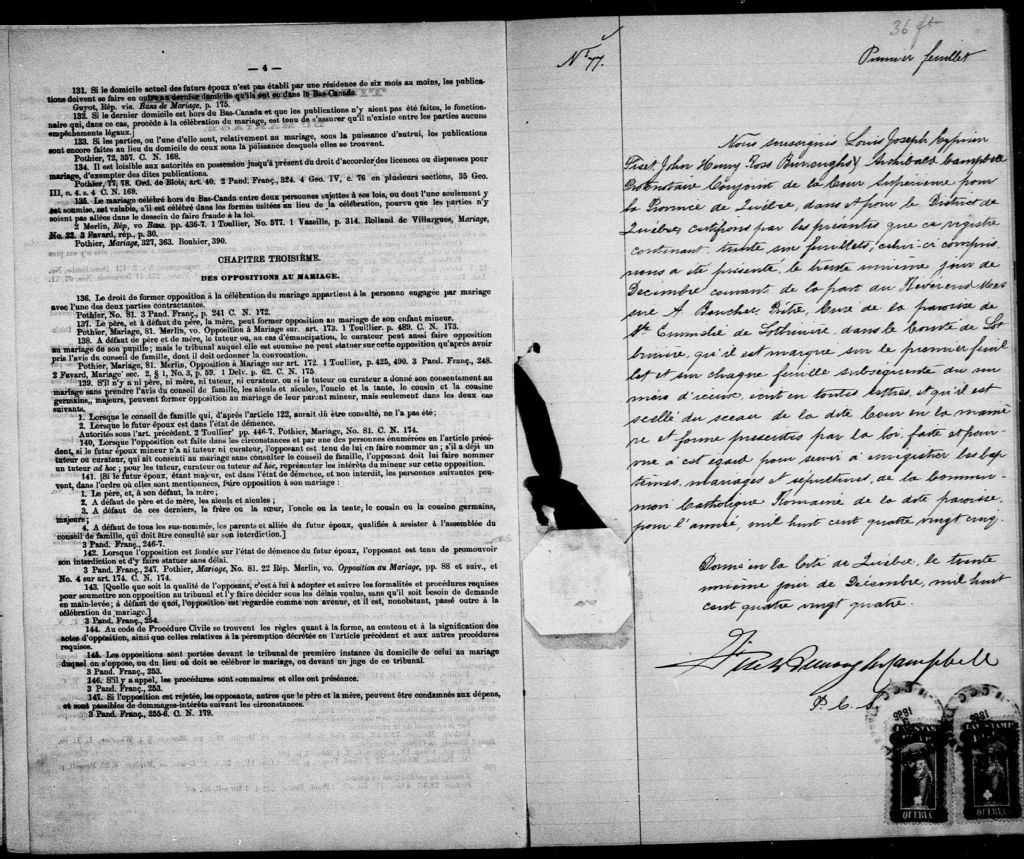 — 4 —
131. Si le domicile actuel des futurs époux n'est pas établi par une résidence de six mois au moins, les publica-
tions doivent se faire en outre au dernier domicile qu'ils ont eu dans le Bas-Canada.
Guyot, Rép. vis. Bans de Mariage, p. 175.
132. Si le dernier domicile est hors du Bas-Canada et que les publications n'y aient pas été faites, le fonction-
naire qui, dans ce cas, procède à la célébration du mariage, est tenu de s'assurer qu'il n'existe entre les parties aucuns
empêchements légaux.]
133. Si les parties, ou l'une d'elle sont, relativement au mariage, sous la puissance d'autrui, les publications
sont encore faites au lieu du domicile de ceux sous la puissance desquels elles se trouvent.
Pothier, 72, 357. C. N. 168.
134. Il est loisible aux autorités en possession jusqu'à présent du droit d'accorder des licences ou dispenses pour
mariage, d'exempter des dites publications.
Pothier, 77, 78. Ord. de Blois, art. 40. 2 Pand. Franç., 324. 4 Geo. IV, c. 76 en plusieurs sections, 35 Geo.
III, c. 4. s. 4 C. N. 169.
135. Le mariage célébré hors du Bas-Canda entre deux personnes sujettes à ses lois, ou dont l'une seulement y
est soumise, est valable, s'il est célébré dans les formes usitées au lieu de la célébration, pourvu que les parties n'y
soient pas allées dans le dessein de faire fraude à la loi.
2 Merlin, Rép, vo Bans. pp. 436-7. 1 Toullier, No. 577. 1 Vazeille, p. 314. Rolland de Villargues, Mariage,
No. 22. 3 Favard, rép., p. 30.
Pothier, Mariage, 327, 363. Bouhier, 390.
CHAPITRE TROISIÈME.
DES OPPOSITIONS AU MARIAGE.
136. Le droit de former opposition à la célébration du mariage appartient à la personne engagée par mariage
avec l'une des deux parties contractantes.
Pothier, No. 81. 3 Pand. Franç., p. 241 C. N. 172.
137. Le père, et à défaut du père, la mère, peut former opposition au mariage de son enfant mineur.
Pothier, Mariage, 81. Merlin, vo. Opposition à Mariage sur. art. 173. 1 Toullier. p. 489. C. N. 173.
138. A défaut de père et de mère, le tuteur ou, au cas d'émancipation, le curateur peut aussi faire opposition
au mariage de son pupille; mais le tribunal auquel elle est soumise ne peut statuer sur cette opposition qu'après avoir
pris l'avis du conseil de famille, dont il doit ordonner la convocation.
Pothier, Mariage, 81. Merlin, Opposition à Mariage sur art. 172. 1 Toullier, p. 425, 490. 3 Pand. Franç., 248.
2 Favard, Mariage' sec. 2, § 1, No. 3, p. 59. 1 Delv. p. 62. C. N. 175.
139. S'il n'y a ni père, ni mère, ni tuteur, ni curateur, ou si le tuteur ou curateur a donné son consentement au
mariage sans prendre l'avis du conseil de famille, les aieuls et aieules, l'oncle et la tante, le cousin et la cousine
germains, majeurs, peuvent former opposition au mariage de leur parent mineur, mais seulement dans les deux cas
suivants.
1. Lorsque le conseil de famille qui, d'après l'article 122, aurait dû être consulté, ne l'a pas été;
2. Lorsque le futur époux est dans l'état de démence.
Autorités sous l'art. précédent. 2 Toullier' pp. 446-7. Pothier, Mariage, No. 81. C. N. 174.
140. Lorsque opposition est faite dans les circonstances et par une des personnes énumérées en l'article précé-
dent, si le futur époux mineur n'a ni tuteur ni curateur, l'opposant est tenu de lui en faire nommer un; s'il a déjà un
tuteur ou curateur, qui ait consenti au mariage sans consulter le conseil de famille, l'opposant doit lui faire nommer
un tuteur ad hoc; pour les tuteur, curateur ou tuteur ad hoc, représenter les intérêts du mineur sur cette opposition.
141. [Si le futur époux, étant majeur, est dans l'état de démence, et non interdit, les personnes suivantes peu-
vent, dans l'ordre où elles sont mentionnées, faire opposition à son mariage:
1. Le père, et, à son défaut, la mère;
2. A défaut de père et de mère, les aieuls et aieules;
3. A défaut de ces derniers, le frère ou la sœur, l'oncle ou la tente, le cousin ou la cousine germains,
majeurs;
4. A défaut de tous les sus-nommés, les parents et alliés du futur époux, qualifiés à assister à l'assemblée du
conseil de famille, qui doit être consulté sur son interdiction.]
3 Pand. Franç., 246-7.
142. Lorsque l'opposition est fondée sur l'état de démence du futur époux, l'opposant est tenu de promouvoir
son interdiction et d'y faire statuer sans délai.
3 Pand. Franç., 247. Pothier, Mariage, No. 81. 22 Rép. Merlin, vo. Opposition au Mariage, pp. 88 et suiv., et
No. 4 sur art. 174. C. N. 174.
143. [Quelle que soit la qualité de l'opposant, c'est à lui à adopter et suivre les formalités et procédures requises
pour soumettre son opposition au tribunal et l'y faire décider sous les délais voulus, sans qu'il soit besoin de demande
en main-levée; à défaut de quoi, l'opposition est regardée comme non avenue, et il est, nonobstant, passé outre à la
célébration du mariage.]
3 Pand. Franç., 254.
144. Au code de Procédure Civile se trouvent les règles quant à la forme, au contenu et à la signification des
actes d'opposition, ainsi que celles relatives à la péremption décrétée en l'article précédent et aux autres procédures
requises.
145. Les oppositions sont portées devant le tribunal de première instance du domicile de celui au mariage
duquel on s'oppose, ou du lieu où doit se célébrer le mariage, ou devant un juge de ce tribunal.
3 Pand. Franç., 253.
146. S'il y a appel, les procédures sont sommaires et elles ont préséance.
3 Pand. Franç., 253.
147. Si l'opposition est rejetée, les opposants, autres que le père et la mère, peuvent être condamnés aux dépens,
et sont passibles de dommages-intérêts suivant les circonstances.
3 Pand. Franç., 255-6. C. N. 179.
36 fts
No 77.
Premier feuillet
Nous soussignés Louis Joseph Cyprien
Fiset, John Henry Ross Burroughs & Archibald Campbell
Protonotaire Conjoint de la Cour Supérieure pour
la Province de Québec, dans et pour le District de
Québec, certifions par les présentes que ce registre
contenant trente six feuillets, celui-ci compris,
nous a été présenté, le trente unième jour de
Décembre courant de la part du Révérend Mes
sire A. Boucher, Prêtre, Curé de la paroisse de
Ste Emmélie de Lotbinière dans le Comté de Lot
binière, qu'il est marqué sur le premier feuil
let et sur chaque feuille subséquente du nu
méro d'iceux, écrit en toutes lettres, et qu'il est
scellé du sceau de la dite Cour en la maniè
re et forme prescrites par la loi, faite et pour-
vue à cet égard pour servir à enregistrer les bap
têmes, mariages et sépultures, de la Commu-
nion Catholique Romaine de la dite paroisse,
pour l'année, mil huit cent quatre vingt cinq.
Donné en la Cité de Québec, le trente
unième jour de Décembre, mil huit
cent quatre vingt quatre.
Fiset Burroughs Campbell
P. C. S.
LAW STAMP
QUEBEC
QUEBEC